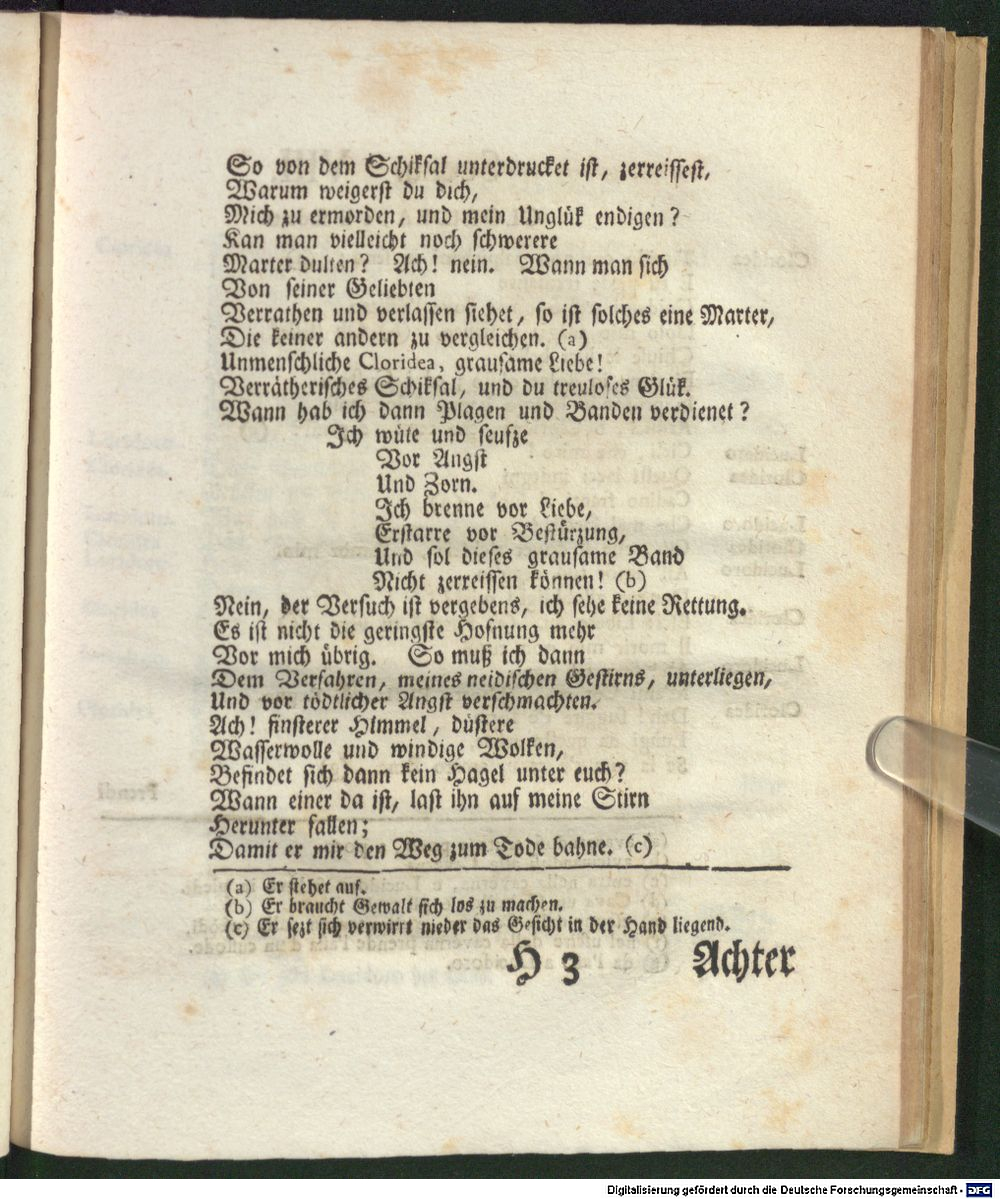 So von dem Schiksal unterdrucket ist, zerreissest,
Warum weigerst du dich,
Mich zu ermorden, und mein Unglük endigen?
Kan man vielleicht noch schwerere
Marter dulten? Ach! nein. Wann man sich
Von seiner Geliebten
Verrathen und verlassen siehet, so ist solches eine Marter,
Die keiner andern zu vergleichen. (a)
Unmenschliche Cloridea, grausame Liebe!
Verrätherisches Schiksal, und du treuloses Glük.
Wann hab ich dann Plagen und Banden verdienet?
Ich wüte und seufze
Vor Angst
Und Zorn.
Ich brenne vor Liebe,
Erstarre vor Bestürzung,
Und sol dieses grausame Band
Nicht zerreissen können! (b)
Nein, der Versuch ist vergebens, ich sehe keine Rettung.
Es ist nicht die geringste Hofnung mehr
Vor mich übrig. So muß ich dann
Dem Verfahren, meines neidischen Gestirns, unterliegen,
Und vor tödtlicher Angst verschmachten.
Ach! finsterer Himmel, düstere
Wasserwolle und windige Wolken,
Befindet sich dann kein Hagel unter euch?
Wann einer da ist, last ihn auf meine Stirn
Herunter fallen;
Damit er mir den Weg zum Tode bahne. (c)
(a) Er stehet auf.
(b) Er braucht Gewalt sich los zu machen.
(c) Er sezt sich verwirrt nieder das Gesicht in der Hand liegend.
H 3 Achter
Digitalisierung gefördert durch die Deutsche Forschungsgemeinschaft - DFG